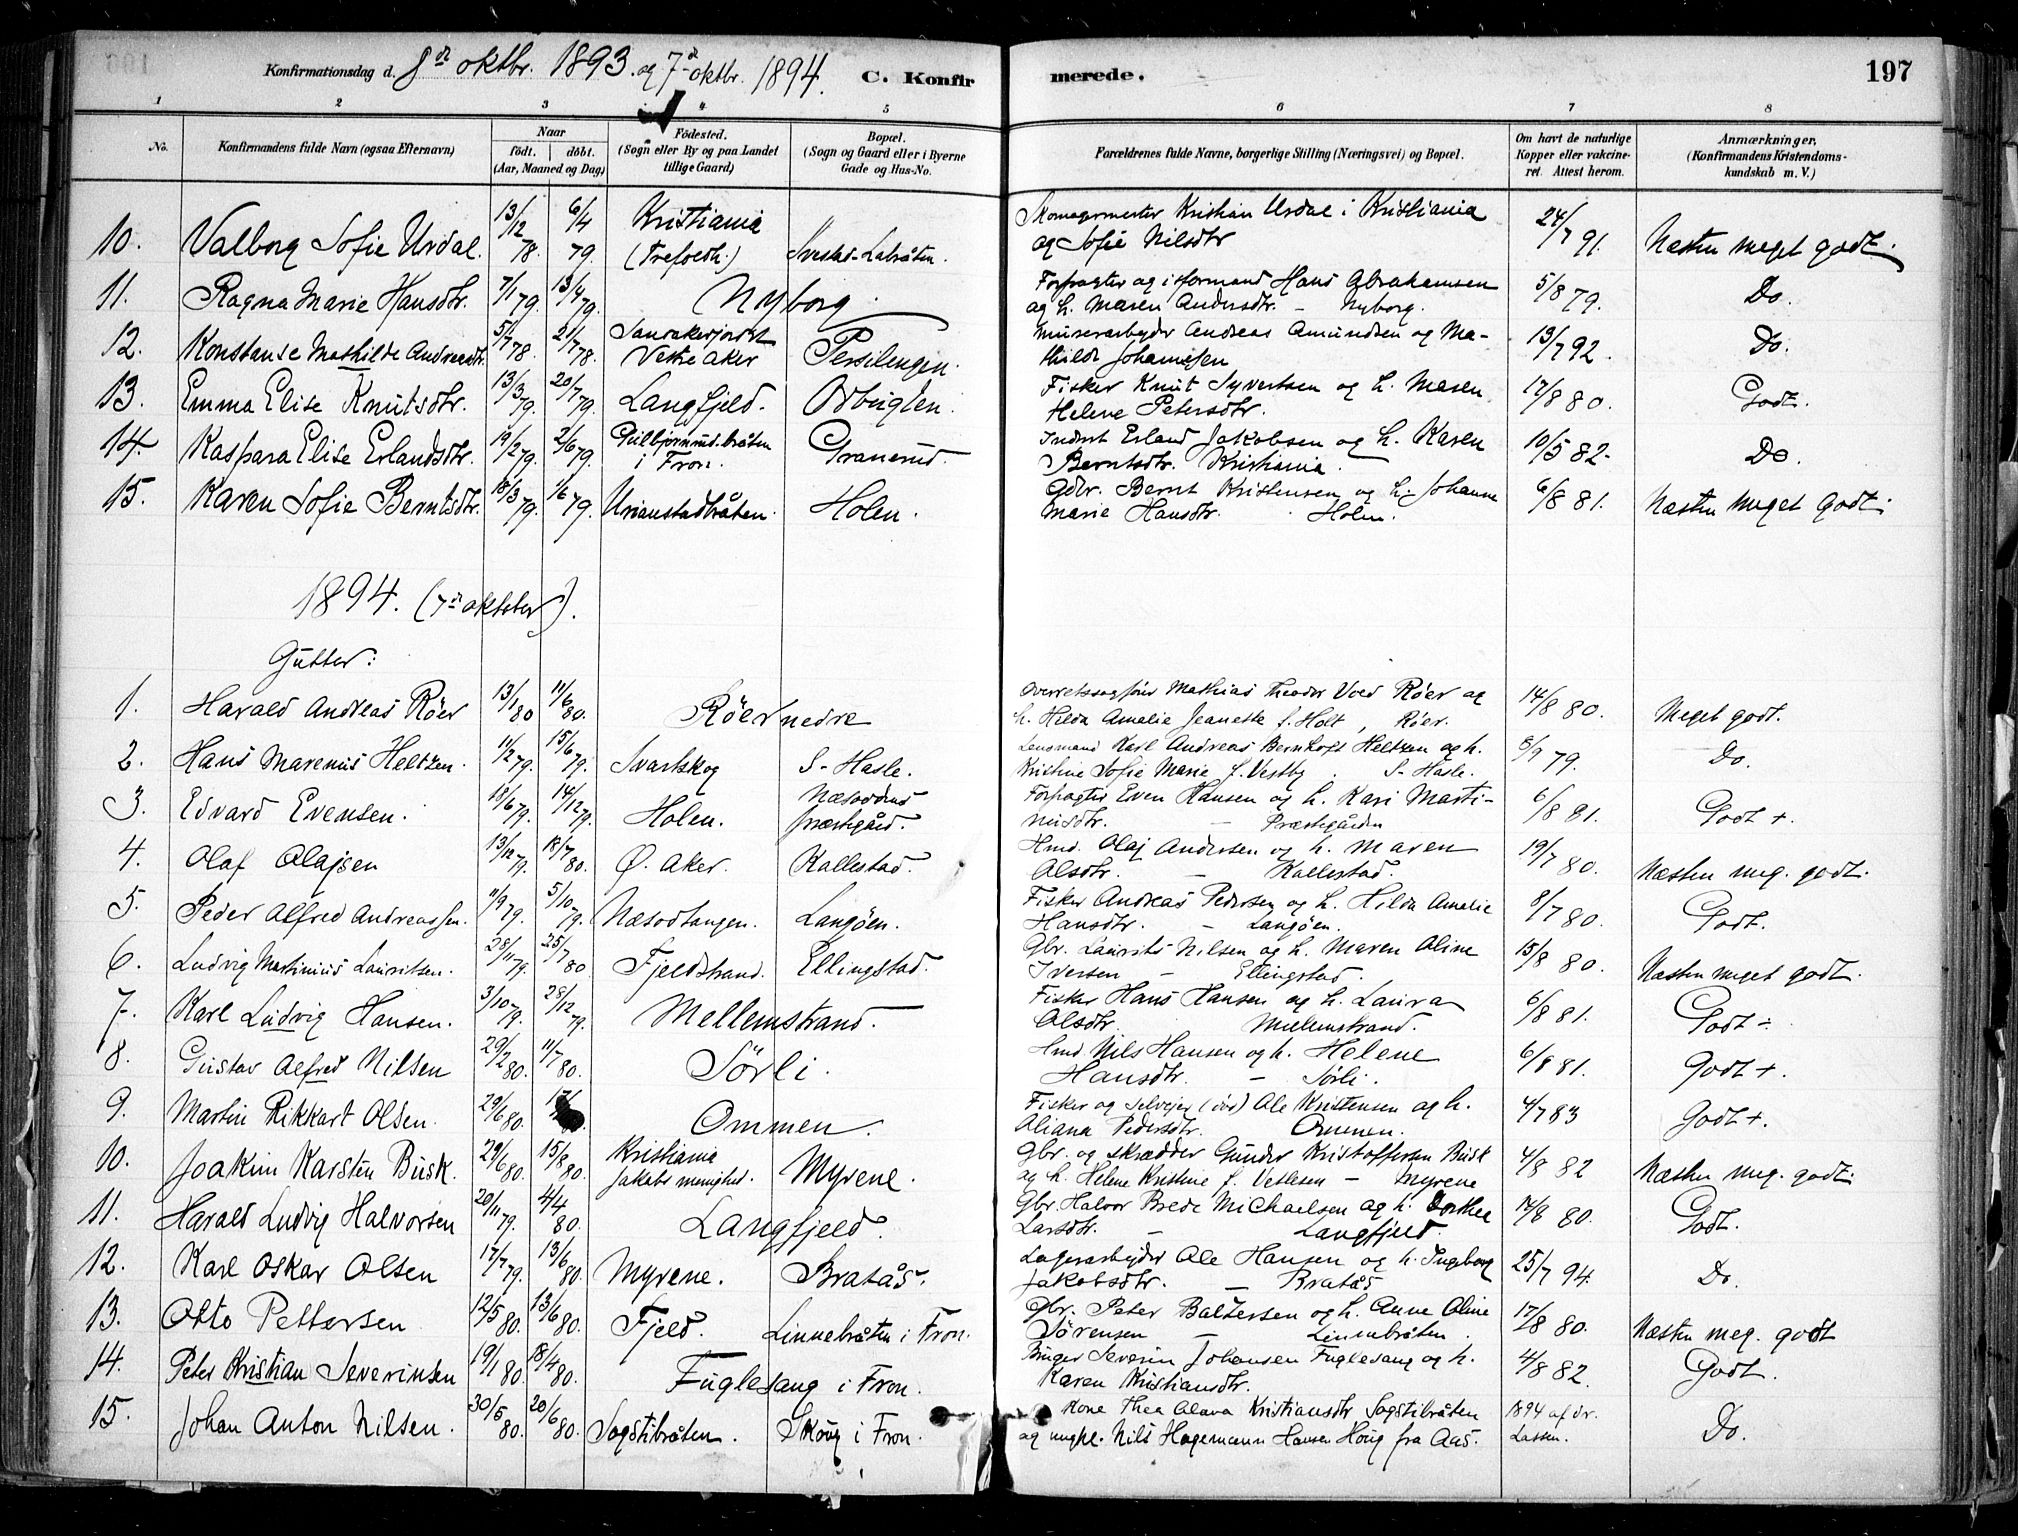 Konfirmationsdag d. 8de oktbr. 1893. og 7de oktbr. 1894. C. Konfirmerede. 197
1 2 3 4 5 6 7 8
No. Konfirmandens fulde Navn (ogsaa Efternavn) Naar født. døbt. (Aar, Maaned og Dag) Fødested. (Sogn eller By og paa Landet tillige Gaard) Bopæl. (Sogn og Gaard eller i Byerne Gade og Hus-No. Forældrenes fulde Navne, borgerlige Stilling (Næringsvei) og Bopæl. Om havt de naturlige Kopper eller vakcineret. Attest herom. Anmærkninger. (Konfirmandens Kristendomskundskab m. V.)
10. Valborg Sofie Urdal. 13/12 78. 6/4 79. Kristiania (Trefoldh.) Svestad-Labråten. Skomagermester Kristian Urdal i Kristiania
og Sofie Nilsdtr 24/7 91. Næsten meget godt.
11. Ragna Marie Hansdtr. 7/1 79. 13/4 79. Nyborg Forpagter og isformand Hans Abrahamsen
og h. Maren Andersdtr. - Nyborg. 5/8 79. Do.
12. Konstanse Mathilde Andreasdtr. 5/7 78. 21/7 78. Vestre Aker Persilengen. Murerarbeyder Andreas Amundsen og Ma-
thilde Johannesen 13/7 92. Do.
13. Emma Elise Knutsdtr. 13/3 79. 20/7 79. Langfjeld. Odbuglen. Fisker Knut Syvertsen og h. Maren
Helene Petersdtr. 17/8 80. Godt.
14. Kaspara Elise Erlandsdtr. 19/2 79. 2/6 79. Gulbjørnrud.bråten i Fron. Granerud. Inderst Erland Jakobsen og h. Karen
Berntsdtr. Kristiania. 10/5 82. Do.
15. Karen Sofie Berntsdtr. 18/3 79. 1/6 79. Urianstadbråten. Holen. Gbr. Bernt Kristensen og h. Johanne
Marie Hansdtr. Holen. 6/8 81. Næsten meget godt.
1894. (7de oktober).
Gutter:
1. Harald Andreas Röer 13/1 80 11/6 80. Röer nedre Overretssagfører Mathias Theodor Voed Röer og
h. Hilda Amalie Jeanette f. Holt, Röer. 14/8 80. Meget godt.
2. Hans Marenius Heltzen. 11/2 79. 15/6 79. Svartskog S-Hasle. Lensmand Karl Andreas Bernhoft Heltzen og h.
Kristine Sofie Marie f. Vestby. S-Hasle. 5/9 79. Do.
3. Edvard Evensen. 18/6 79. 14/12 79. Holen. Næsoddens præstegård. Forpagter Even Hansen og h. Kari Marti-
nusdtr. - Præstegården 6/8 81. Godt +.
4. Olaf Olafsen 13/12 79. 18/7 80. Ø. Aker. Kallestad. Hmd. Olaf Andersen og h. Maren
Olsdtr. - Kallestad. 19/7 80. Næsten meg. godt.
5. Peder Alfred Andreassen. 11/9 79. 5/10 79. Næsodtangen. Langöen. Fisker Andreas Pedersen og h. Hilda Amalie
Hansdtr. - Langöen. 8/7 80. Godt.
6. Ludvig Martinius Lauritsen. 28/11 79. 25/7 80. Fjeldstrand. Ellingstad. Gbr. Laurits Nilsen og h. Maren Oline
Iversen - Ellingstad. 15/8 80. Næsten meget godt.
7. Karl Ludvig Hansen. 3/10 79. 28/12 79. Mellemstrand. Fisker Hans Hansen og h. Laura
Olsdtr. Mellemstrand. 6/8 81. Godt ÷
8. Gustav Alfred Nilsen 29/2 80. 11/7 80. Sörli. Hmd Nils Hansen og h. Helene
Hansdtr. - Sörli. 6/8 81. Godt +.
9. Martin Rikkart Olsen. 29/6 80. Ommen. Fisker og selvejer (död) Ole Kristensen og h.
Oliana Pedersdtr. Ommen. 4/7 83 Godt +.
10. Joakim Karsten Busk. 29/6 80. 15/8 80. Kristiania Jakobs menighed. Myrene. Gbr. og skrædder Gunder Kristoffersen Busk
og h. Helene Kristine f. Vetlesen - Myrene 4/8 82 Næsten meg. godt.
11. Harald Ludvig Halvorsen 20/11 79. 4/4 80. Langfjeld. Gbr. Halvor Brede Michaelsen og h. Dorthea
Larsdtr. - Langfjeld. 14/8 80. Godt.
12. Karl Oskar Olsen 17/7 79. 13/6 80. Myrene. Bratås. Lagerarbeyder Ole Hansen og h. Ingeborg
Jakobsdtr. - Bratås 25/7 94. Do.
13. Otto Pettersen 12/5 80. 13/6 80. Fjeld. Linnebråten i Fron. Gbr. Peter Baltersen og h. Anne Oline
Sörensen - Linnebråten. 17/8 80. Næsten meg. godt
14. Peter Kristian Severinsen 19/1 80. 18/4 80. Fuglesang i Fron. Bruger Severin Johansen Fuglesang og h.
Karen Kristiansdtr. 4/8 82. Godt.
15. Johan Anton Nilsen. 30/5 80. 20/6 80. Sogstibråten. Skoug i Fron. Kone Thea Olava Kristiansdtr Sogstibråten
og ungk. Nils Hagemann Hansen Houg fra Aas. 1894 af dr. Lassen. Do.